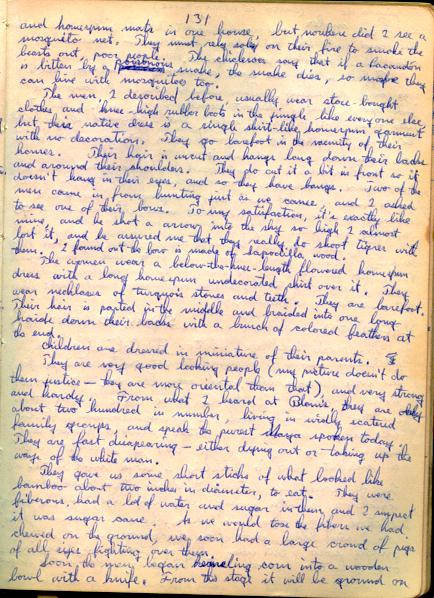 131
and homespun mats in one house, but nowhere did I see a
mosquito net. They must rely solely on their fire to smoke the
beasts out, poor people. The chicleros say that if a Lacandon
is bitten by a poisonous snake, the snake dies, so maybe they
can live with mosquitoes too.
The men I described before usually wear store-bought
clothes and knee-high rubber boots in the jungle like everyone else,
but their native dress is a single shirt-like homespun garment
with no decorations. They go barefoot in the vicinity of their
homes. Their hair is uncut and hangs long down their backs
and around their shoulders. They do cut it a bit in front so it
doesn't hang in their eyes, and so they have bangs. Two of the
men came in from hunting just as we came, and I asked
to see one of their bows. To my satisfaction, it's exactly like
mine, and he shot a arrow into the sky so high I almost
lost it, and he assured me that they really do shoot tigres with
them. I found out the bow is made of sapodilla wood.
The women wear a below-the-knee-length flowered homespun
dress with a long homespun undecorated shirt over it. They
wear necklaces of turquois stones and teeth. They are barefoot.
Their hair is parted in the middle and braided into one long
braide down their backs with a bunch of colored feathers at
the end.
Children are dressed in miniature of their parents.
They are very good looking people (my picture doesn't do
them justice — they are more oriental than that), and very strong
and hardy. From what I heard at Blom's, they are
about two hundred in number, living in widly scatered
family groups, and speak the purest Maya spoken today.
They are fast disapearing — either dying out or taking up the
ways of the white man.
They gave us some short sticks of what looked like
bamboo about two inches in diameter, to eat. They were
fiberous, had a lot of water and sugar in them, and I suspect
it was sugar cane. As we would toss the fibers we had
chewed on the ground, we soon had a large crowd of pigs
of all sizes fighting over them.
Soon the men began kerneling corn into a wooden
bowl with a knife. From this stage it will be ground on